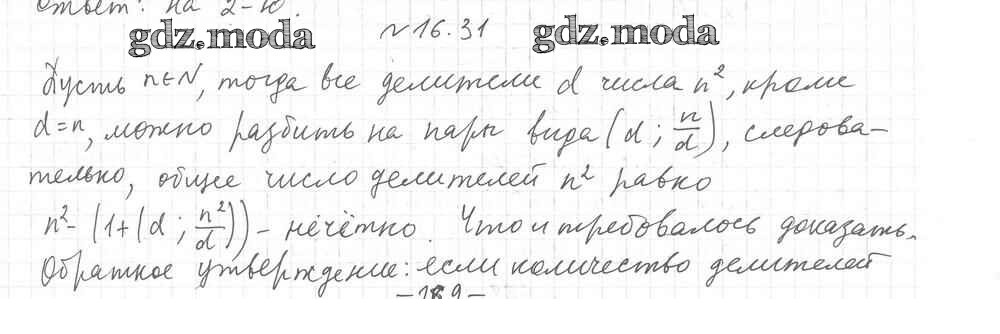 Ответ: на 2-ю.
gdz.moda №16.31 gdz.moda
Пусть n∈N, тогда все делители d числа n², кроме
d=n, можно разбить на пары вида (d; n/d), следова-
тельно, общее число делителей n² равно
n²- (1+(d; n²/d)) - нечётно. Что и требовалось доказать.
Обратное утверждение: если количество делителей
-189-